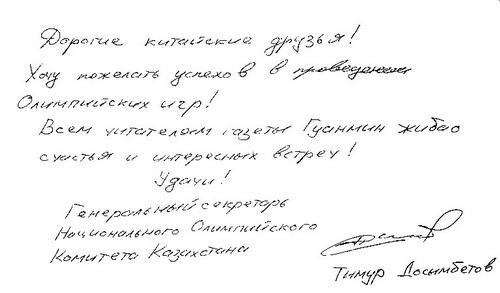 Дорогие китайские друзья!
Хочу пожелать успехов в проведении
Олимпийских игр!
Всем читателям газеты Гуанмин жибао
счастья и интересных встреч!
Удачи!
Генеральный секретарь
Национального Олимпийского
Комитета Казахстана
Тимур Досымбетов